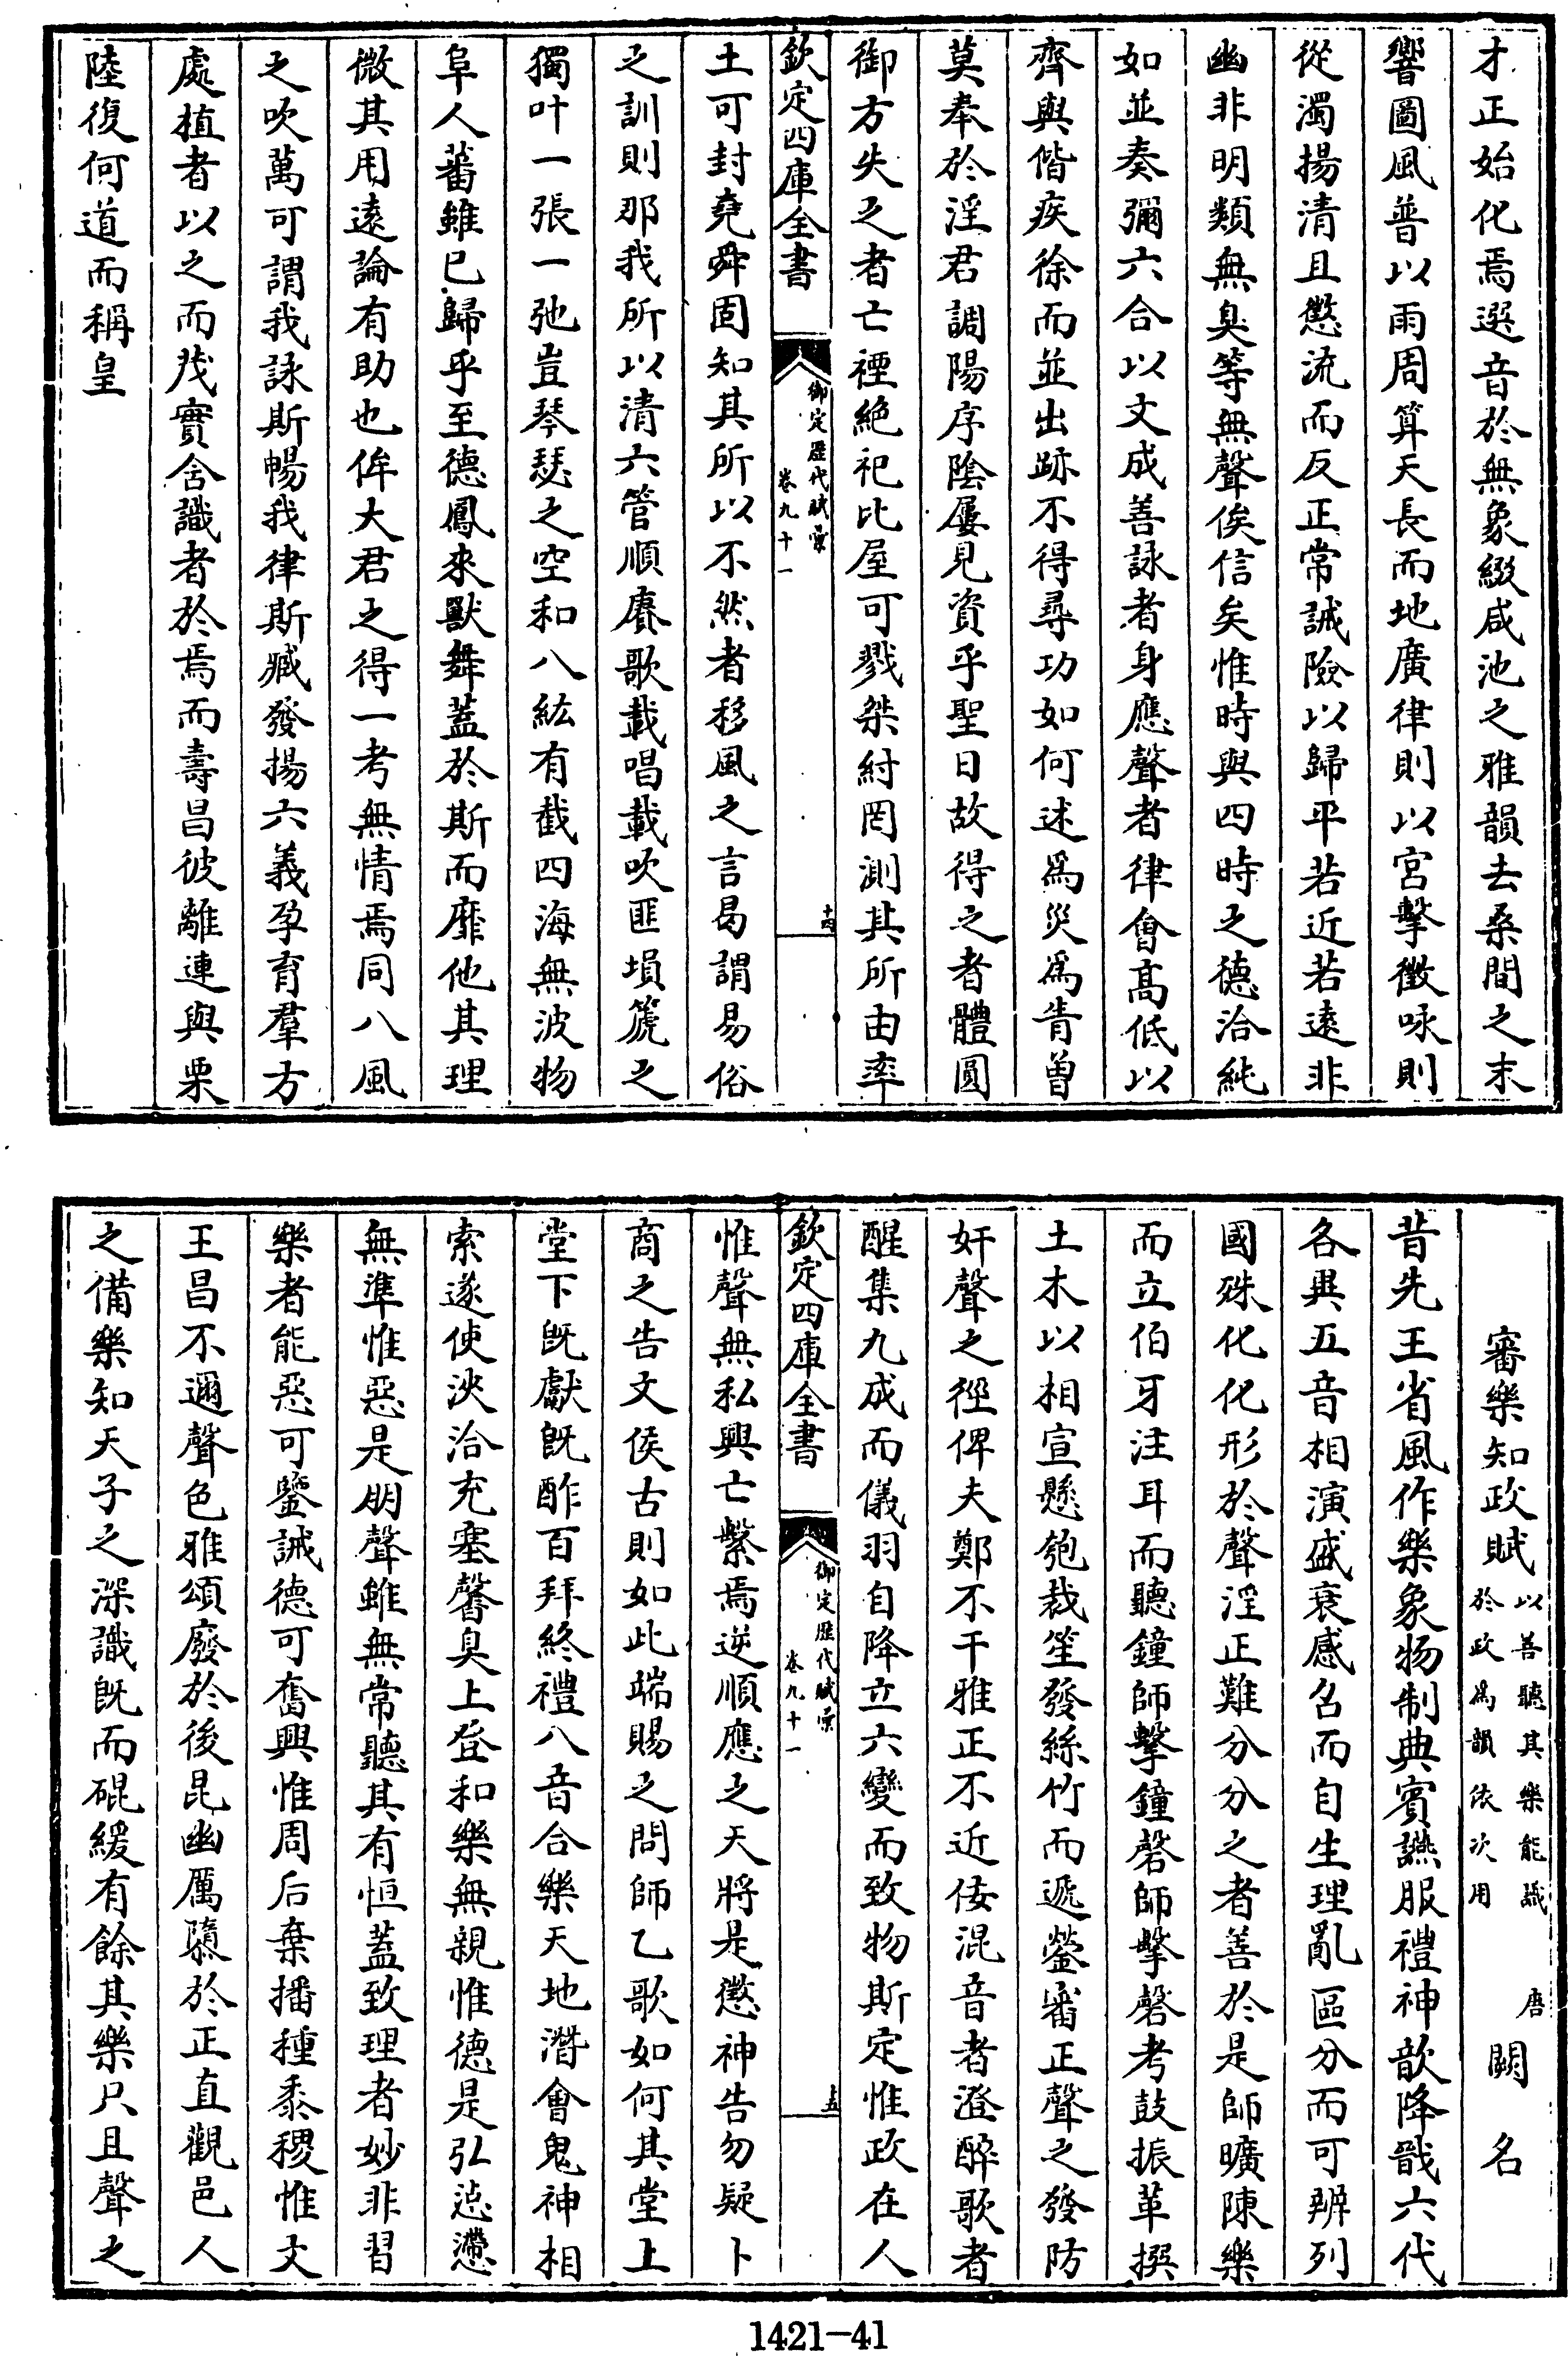 才正始化焉選音於無象綴咸池之雅韻去桑間之末
響圖風普以雨周算天長而地廣律則以宮擊徵咏則
從濁揚清且懲流而反正常誡險以歸平若近若遠非
幽非明類無臭等無聲俟信矣惟時與四時之德洽純
如並奏彌六合以文成善詠者身應聲者律會高低以
齊與偕疾徐而並出跡不得尋功如何述為災為眚曾
莫奉於淫君調陽序陰屢見資乎聖日故得之者體圓
御方失之者亡禋絕祀比屋可戮桀紂罔測其所由率
欽定四庫全書
御定歷代賦彙
卷九十一
十四
土可封堯舜固知其所以不然者移風之言曷謂易俗
之訓則那我所以清六管順賡歌載唱載吹匪塤篪之
獨叶一張一弛豈琴瑟之空和八紘有截四海無波物
阜人蕃雖已歸乎至德鳳來獸舞蓋於斯而靡他其理
微其用遠論有助也侔大君之得一考無情焉同八風
之吹萬可謂我詠斯暢我律斯臧發揚六義孕育羣方
處植者以之而茂實含識者於焉而壽昌彼離連與栗
陸復何道而稱皇
審樂知政賦
以善聽其樂能識
於政為韻依次用
唐
闕名
昔先王省風作樂象物制典賓讌服禮神歆降戩六代
各異五音相演盛衰感召而自生理亂區分而可辨列
國殊化化形於聲淫正難分分之者善於是師曠陳樂
而立伯牙注耳而聽鐘師擊鐘磬師擊磬考鼓振革撰
土木以相宣懸匏裁笙發絲竹而遞瑩審正聲之發防
奸聲之徑俾夫鄭不干雅正不近佞混音者澄醉歌者
醒集九成而儀羽自降立六變而致物斯定惟政在人
欽定四庫全書
御定歷代賦彙
卷九十一
十五
惟聲無私興亡繫焉逆順應之天將是懲神告勿疑卜
商之告文侯古則如此端賜之問師乙歌如何其堂上
堂下旣獻旣酢百拜終禮八音合樂天地潛會鬼神相
索遂使浹洽充塞馨臭上登和樂無親惟德是弘怗懘
無準惟惡是朋聲雖無常聽其有恒蓋致理者妙非習
樂者能惡可鑒誡德可奮興惟周后棄播種黍稷惟文
王昌不邇聲色雅頌廢於後昆幽厲隳於正直觀邑人
之備樂知天子之深識旣而硍緩有餘其樂只且聲之
1421-41